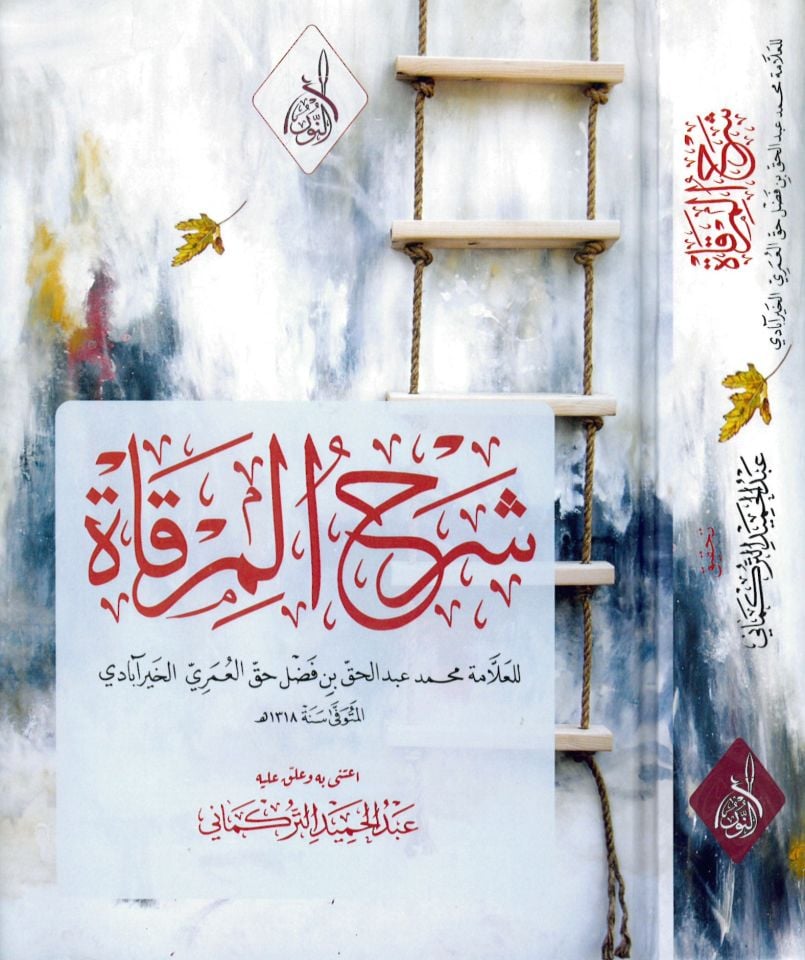 النور
شَرْحُ المِرقَاة
للعَلَّامة محمد عبد الحقّ بن فَضل حقّ العُمَرِيّ الخَيرآبادي
المُتَوفَّى سَنَة ١٣١٨هـ
اعتنى به وعلّق عليه
عَبْدُ الحَمِيْدِ التُّركمَاني
شَرْحُ المِرقَاة
للعَلَّامة محمد عبد الحقّ بن فَضل حقّ العُمَرِيّ الخَيرآبادي
تحقيق
عَبْدُ الحَمِيْدِ التُّركمَاني
النور